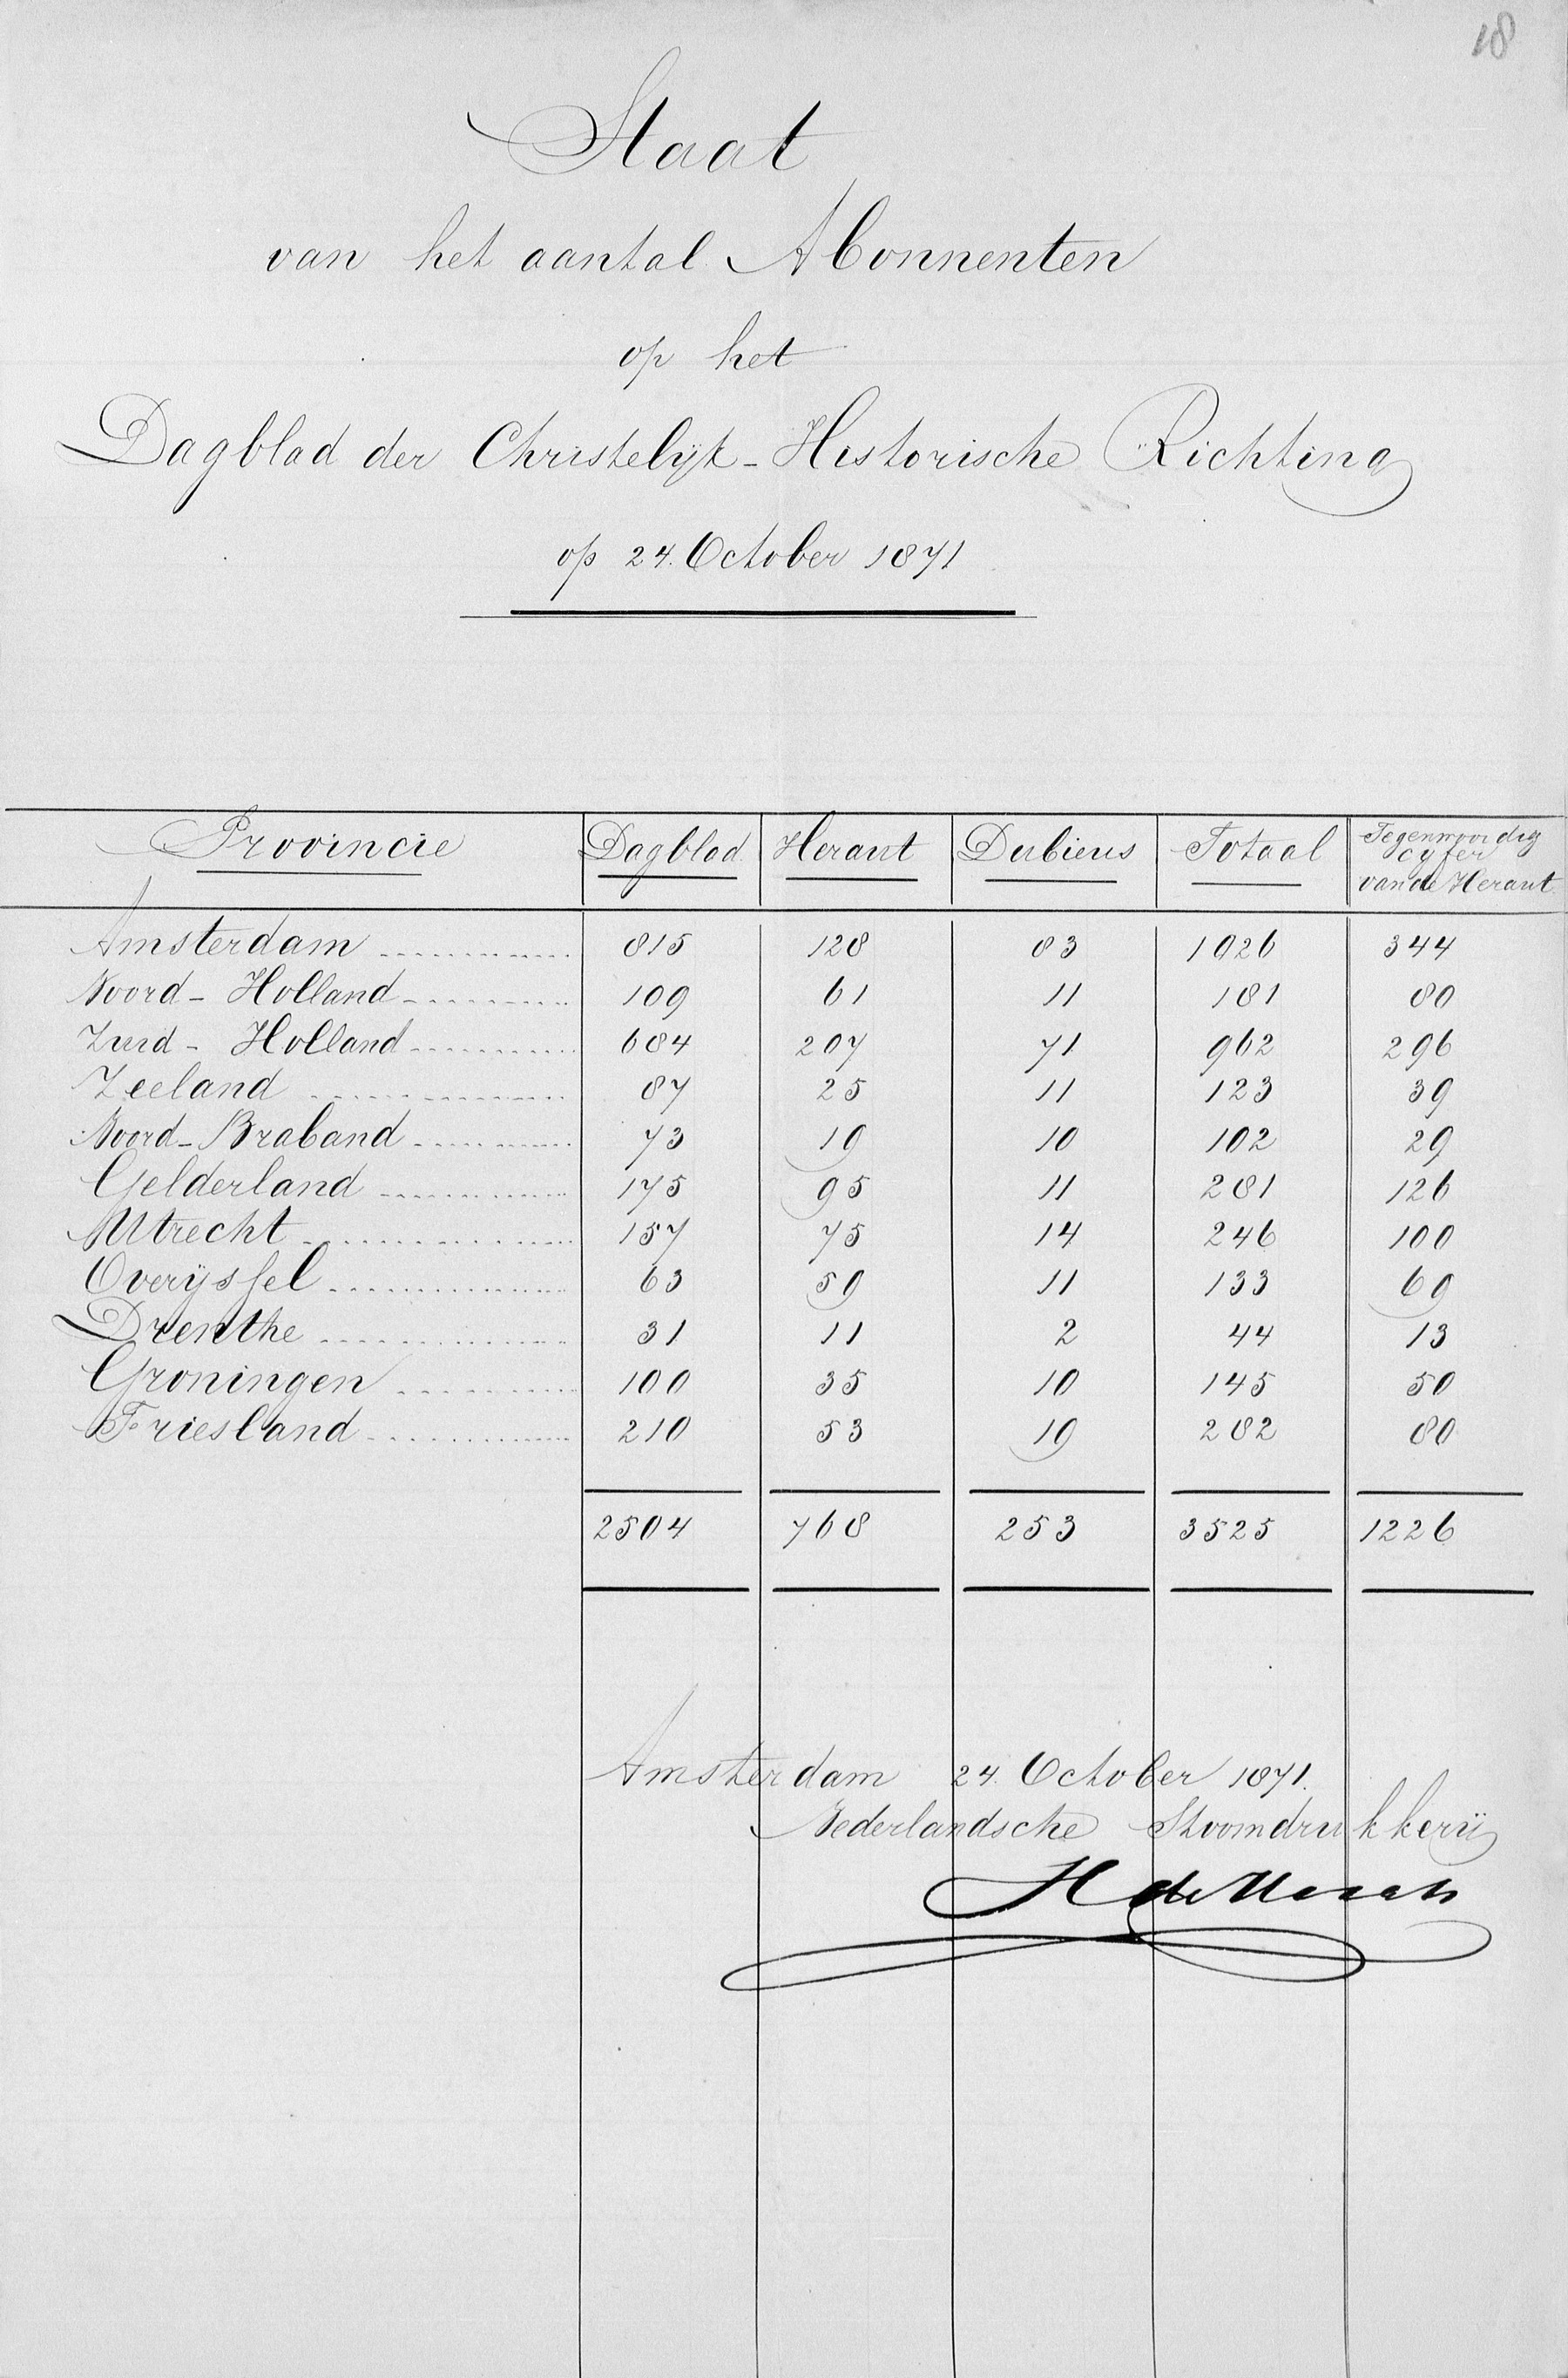 18
Staat
van het aantal Abonnenten
op het
Dagblad der Christelijk-Historische Richting
op 24. October 1871
Provincie Dagblad Heraut Dubieus Totaal Tegenwoordig cyfer van de Heraut
Amsterdam 815 128 83 1026 344
Noord-Holland 109 61 11 181 80
Zuid-Holland 684 207 71 962 296
Zeeland 87 25 11 123 39
Noord-Braband 73 19 10 102 29
Gelderland 175 95 11 281 126
Utrecht 157 75 14 246 100
Overijssel 63 59 11 133 69
Drenthe 31 11 2 44 13
Groningen 100 35 10 145 50
Friesland 210 53 19 282 80
2504 768 253 3525 1226
Amsterdam 24. October 1871.
Nederlandsche Stoomdrukkerij
H de